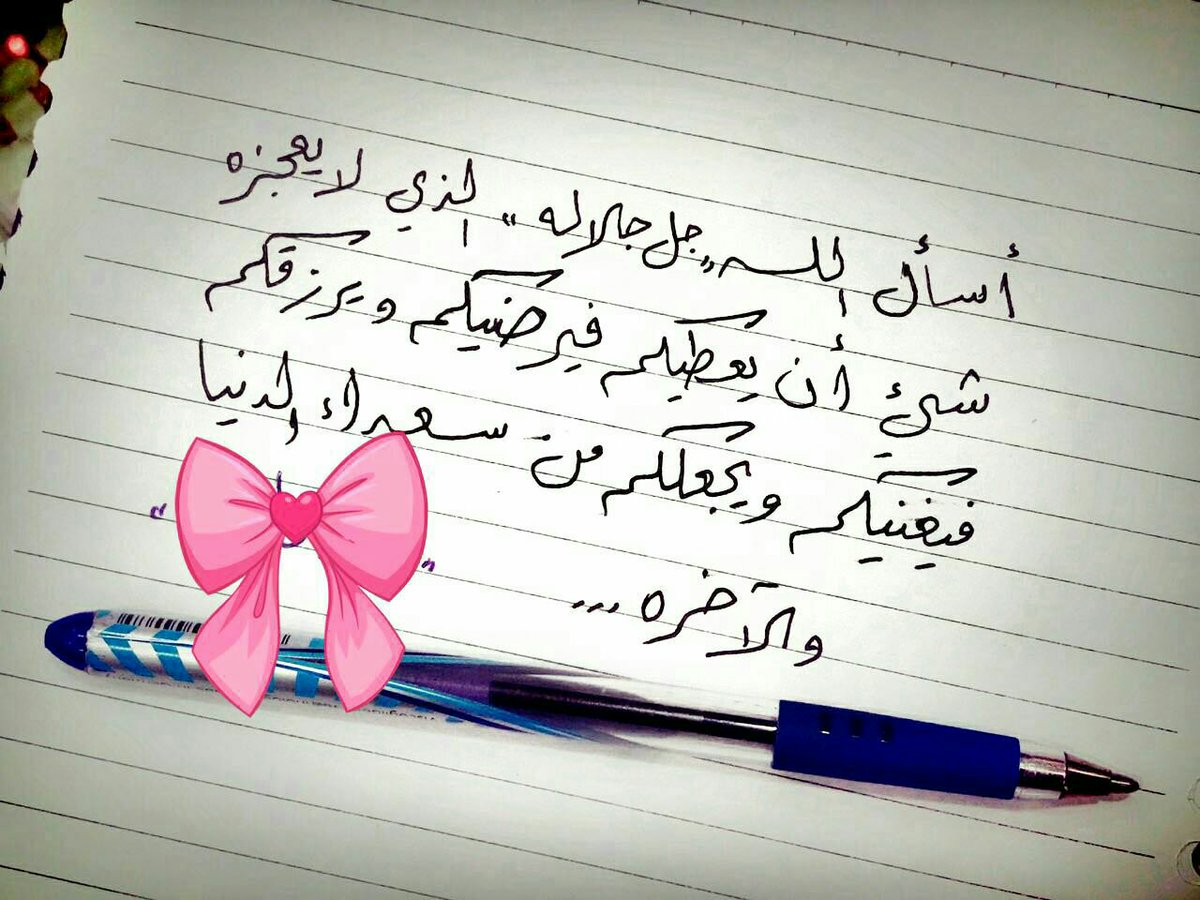 أسأل الله „جل جلاله" الذي لا يعجزه
شيئ أن يعطيكم فيرضيكم ويرزقكم
فيغنيكم ويجعلكم من سعداء الدنيا
والآخره ...